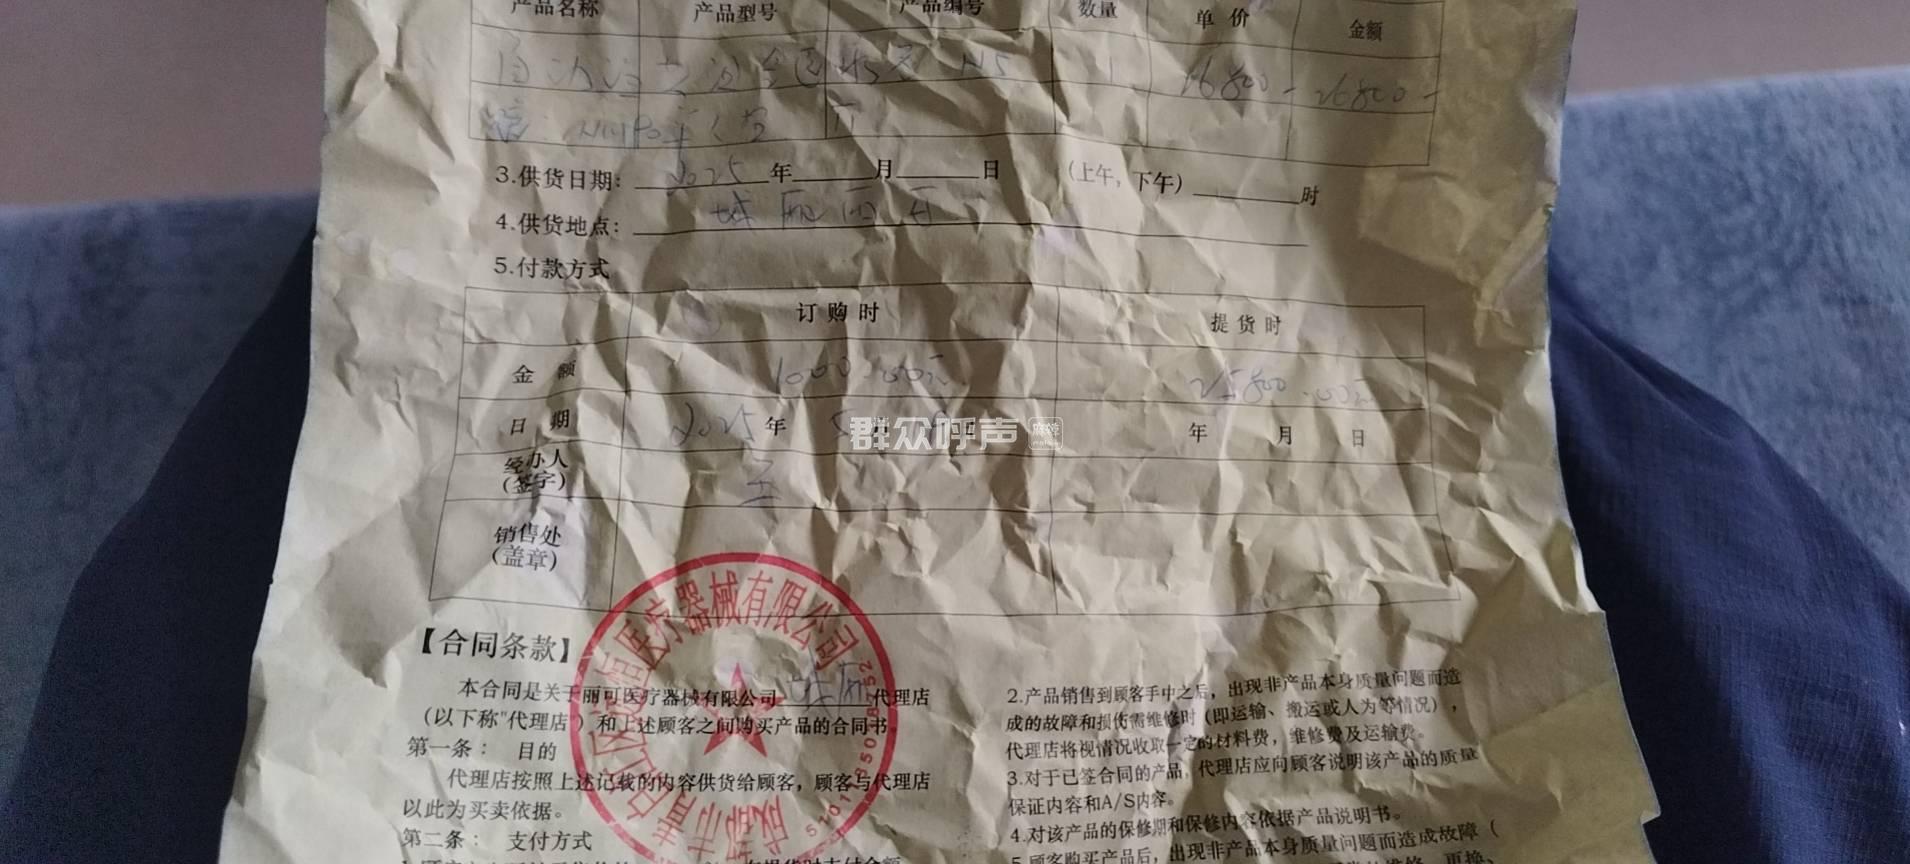 产品名称 产品型号 产品编号 数量 单价 金额
1 26800- 26800-
3.供货日期: 2025 年 月 日 (上午,下午) 时
4.供货地点:
5.付款方式
订购时 提货时
金额 1000.00元 25800.00元
日期 2025年 年 月 日
经办人
(签字)
销售处
(盖章)
群众呼声
麻辣
【合同条款】
本合同是关于丽可医疗器械有限公司 代理店
(以下称"代理店")和上述顾客之间购买产品的合同书。
第一条: 目的
代理店按照上述记线的内容供货给顾客,顾客与代理店
以此为买卖依据。
第二条: 支付方式
2.产品销售到顾客手中之后,出现非产品本身质量问题而造
成的故障和损伤需维修时(即运输、搬运或人为等情况),
代理店将视情况收取一定的材料费,维修费及运输费。
3.对于已签合同的产品,代理店应向顾客说明该产品的质量
保证内容和A/S内容。
4.对该产品的保修期和保修内容依据产品说明书。
5.顾客购买产品后,出现非产品本身质量问题而造成故障(
成都市青白江区 医疗器械有限公司